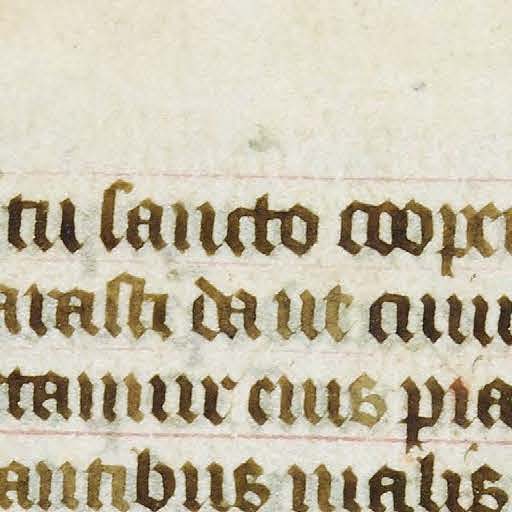 tu sancto cooper
arasti da ut cuiu
tamur eius pia
antibus malis